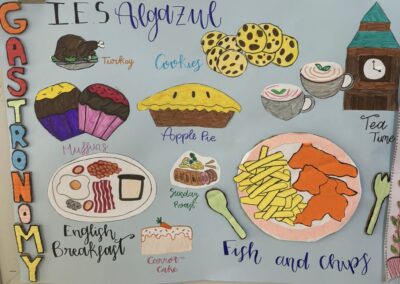 GASTRONOMY
IES Algazul
Turkey
Cookies
Muffins
Apple Pie
Tea
Time
Sunday
Roast
English
Breakfast
Carrot-
Cake
Fish and chips